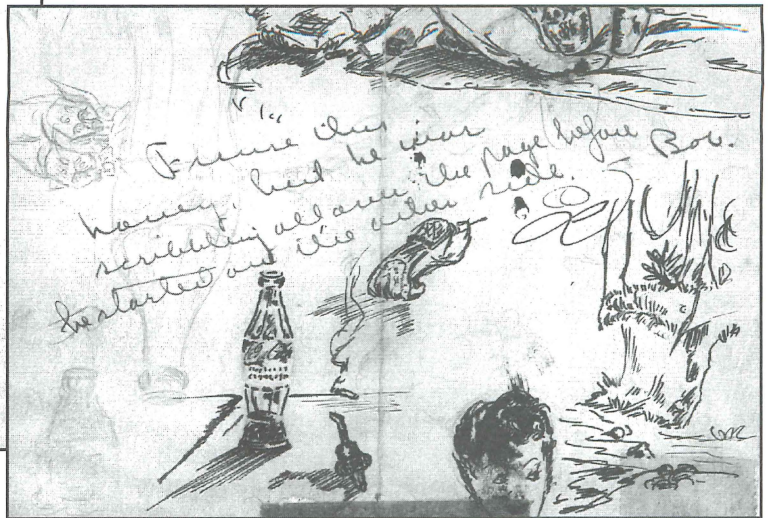 Excuse this
honey, but he was
scribbling all over the page before
he started on the other side. Bob.
Coca-Cola